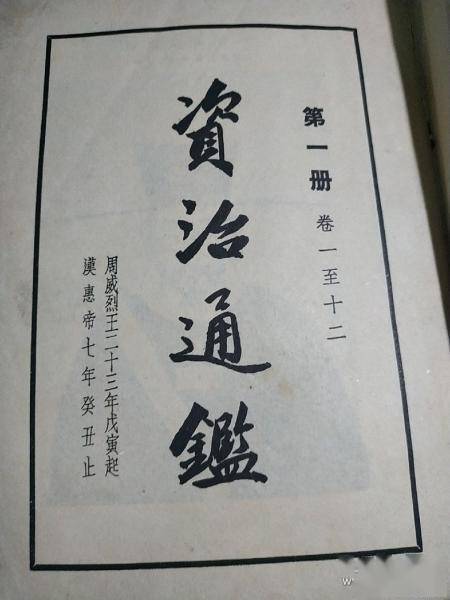 第一册 卷一至十二
資治通鑑
周威烈王二十三年戊寅起
漢惠帝七年癸丑止